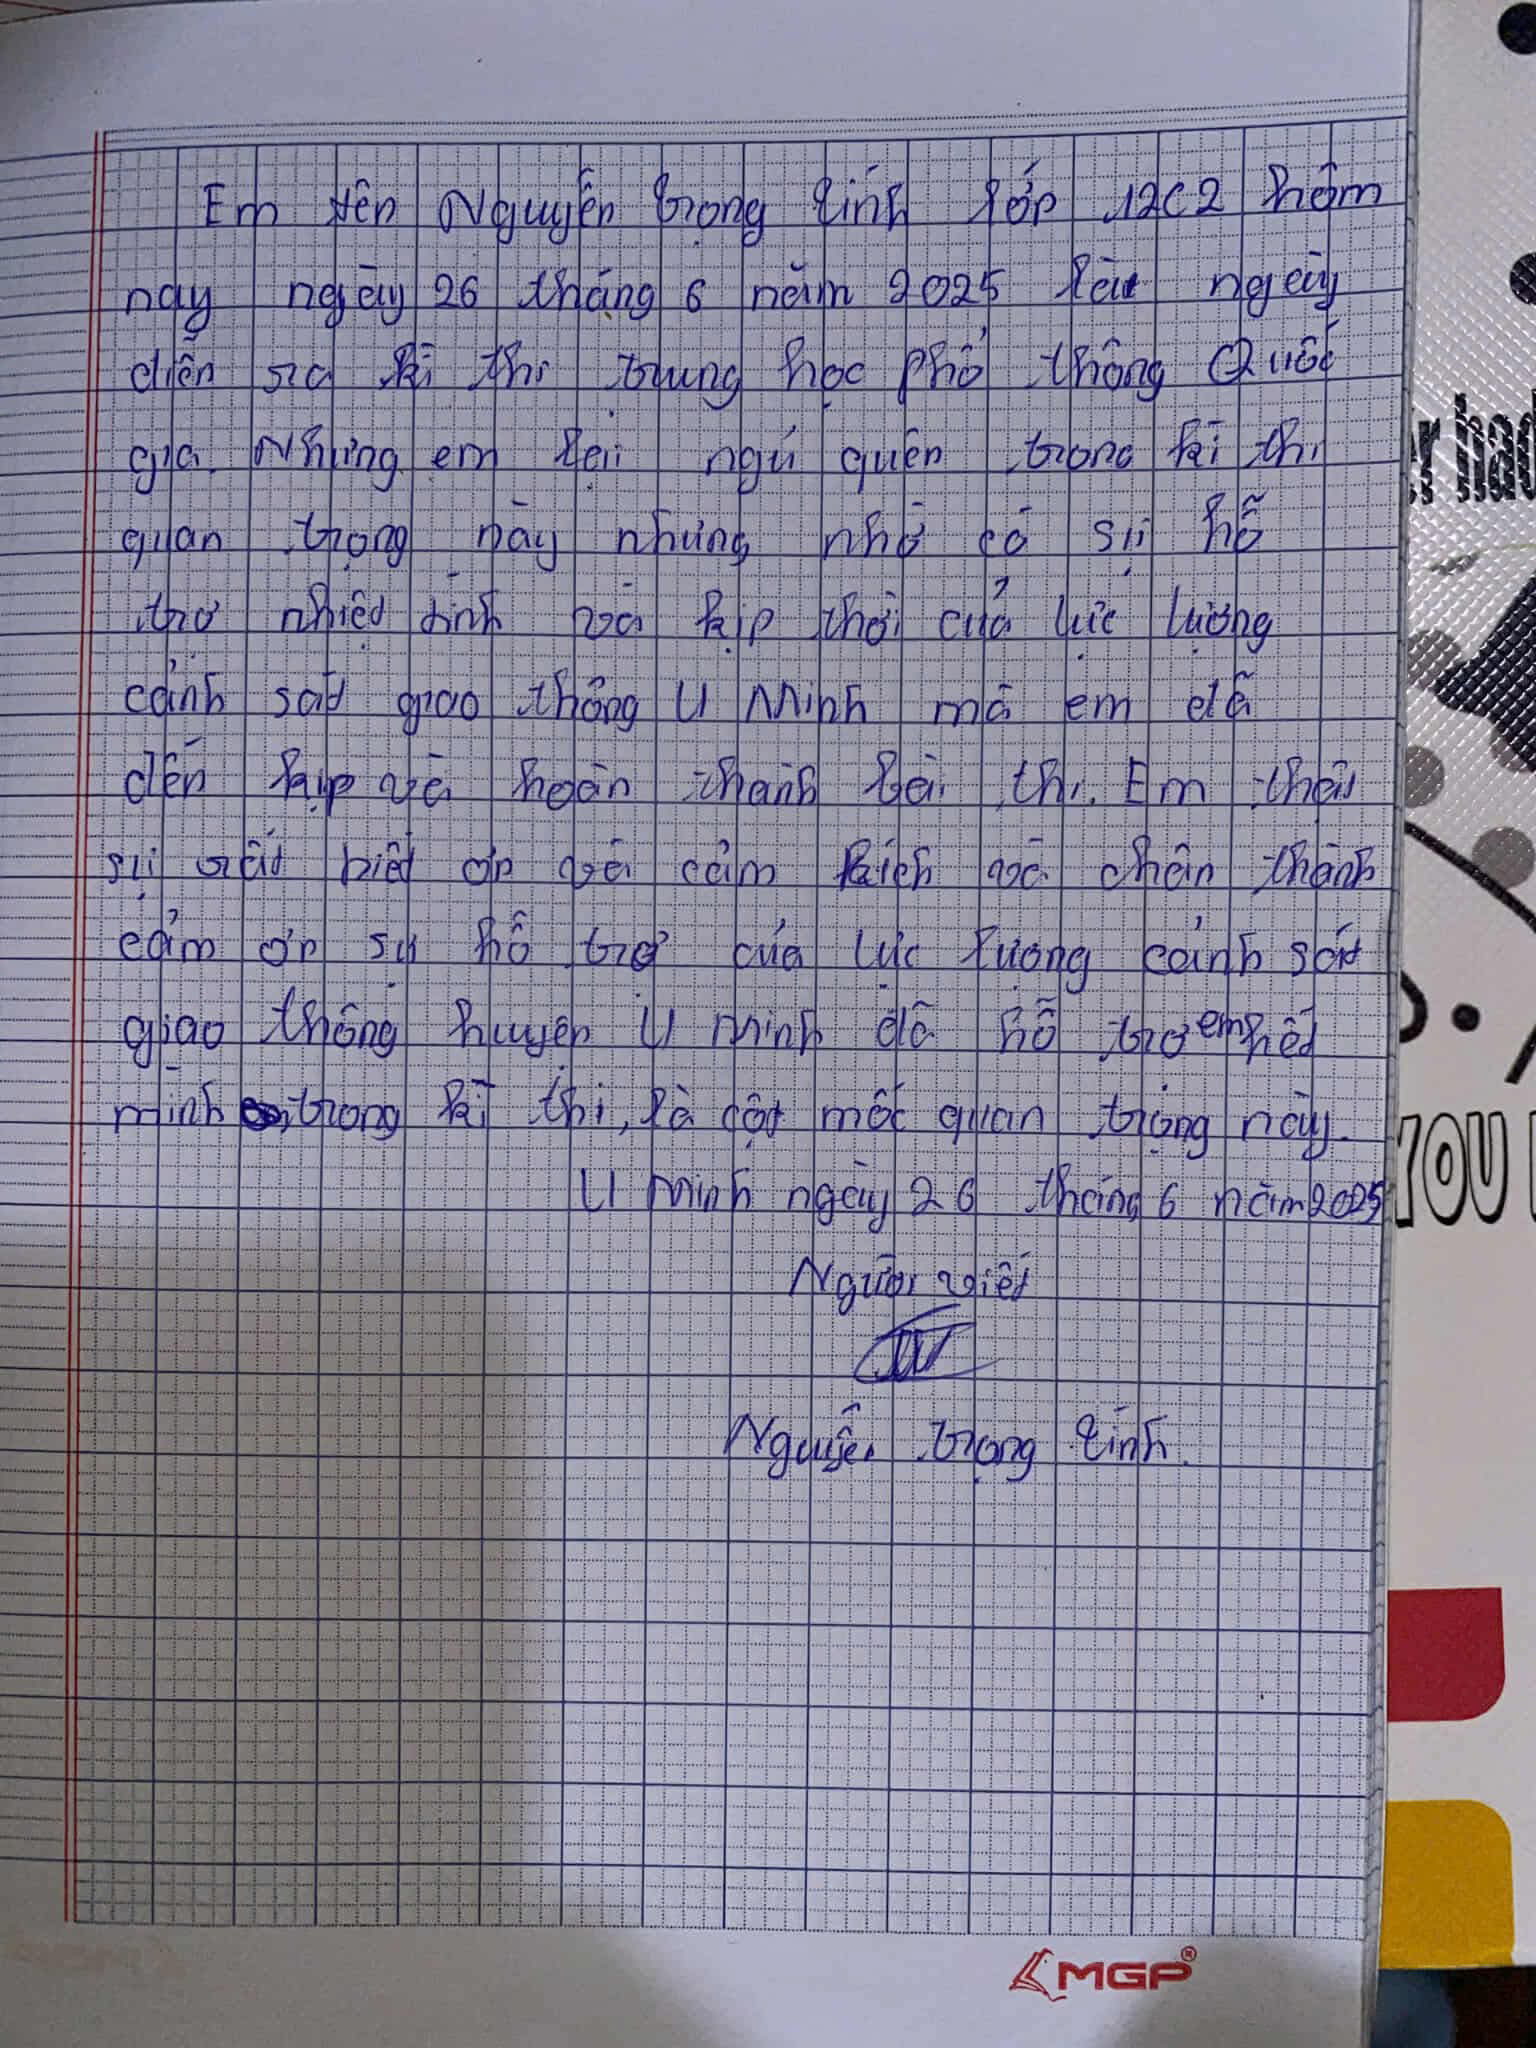 Em tên Nguyễn trọng tính lớp 12C2 hôm
nay ngày 26 tháng 6 năm 2025 là ngày
diễn ra kì thi trung học phổ thông Quốc
gia. Nhưng em lại ngủ quên trong kì thi
quan trọng này nhưng nhờ có sự hỗ
trợ nhiệt tình và kịp thời của lực lượng
cảnh sát giao thông U Minh mà em đã
đến kịp và hoàn thành bài thi. Em thật
sự rất biết ơn và cảm kích và chân thành
cảm ơn sự hỗ trợ của lực lượng cảnh sát
giao thông huyện U Minh đã hỗ trợ em hết
mình trong kì thi, là cột mốc quan trọng này.
U Minh ngày 26 tháng 6 năm 2025
Người viết
Nguyễn trọng tính.
MGP®
YOU